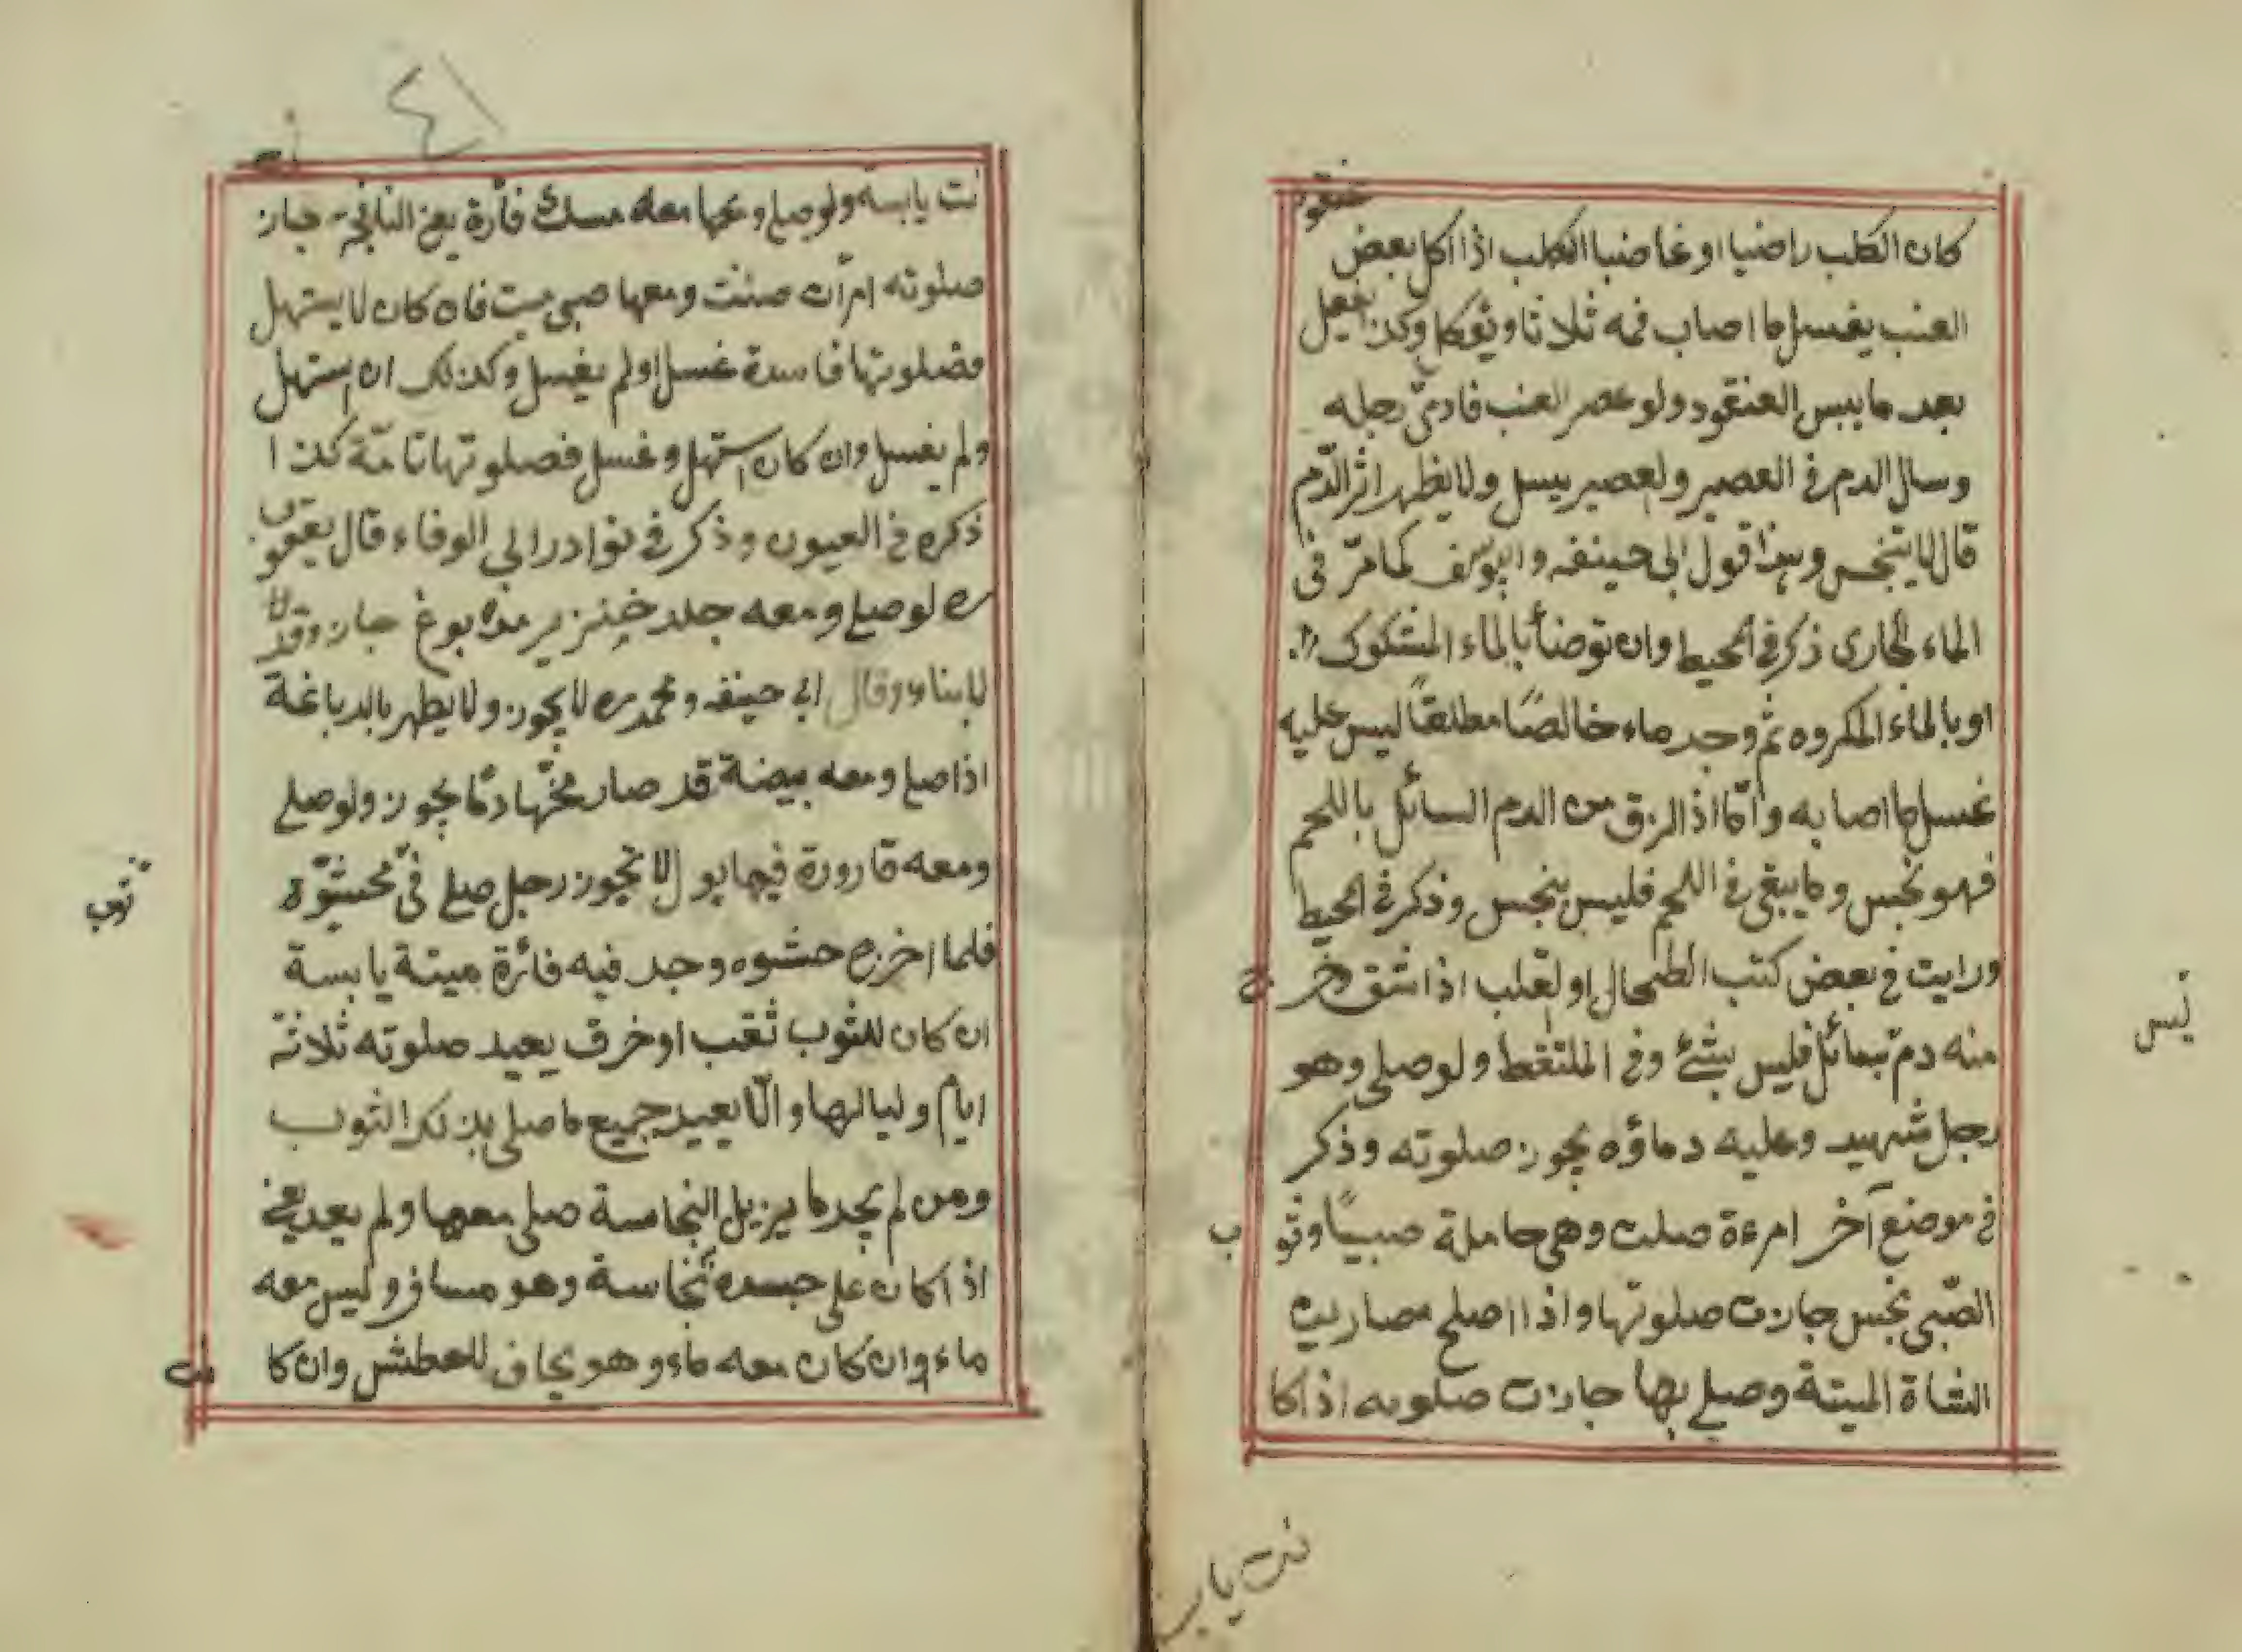 عنقود
كان الكلب راضيا او غاضبا الكلب اذا اكل بعض
العنب يغسل ما اصاب فمه ثلاثا ويؤكل وكذا يفعل
بعد ما يبس العنقود ولو عصر العنب فادمى رجله
وسال الدم فى العصير والعصير يسل ولا يظهر اثر الدّم
قال لا يتنجس وهذا قول ابى حنيفه وابويوسف كما مرّ فى
الماء الجارى ذكر فى المحيط وان توضأ بالماء المشكوك
او بالماء المكروه ثم وجد ماء خالصًا مطلقًا ليس عليه
غسل ما اصابه وامّا اذا لزق من الدم السائل باللحم
فهو نجس وما يبقى فى اللحم فليس بنجس وذكر فى المحيط
ورايت فى بعض كتب الطحال او لقلب اذا شق وخر ج
منه دم سائل فليس بشئ وفى الملتقط ولو صلى وهو
رجل شهيد وعليه دماؤه يجوز صلوته وذكر
فى موضع آخر امرءة صلت وهى حاملة صبيًا وثو ب
الصّبى نجس جازت صلوتها واذا اصلح مصارين
الشاة الميتة وصلى بها جازت صلوته اذا كا
نت يابس
نت يابسة ولو صلى ومعه مسك فأرة يعنى النافجة جاز
صلوته امرأت صلت ومعها صبى ميت فان كان لا يستهل
فصلوتها فاسدة غسل او لم يغسل وكذلك ان استهل
ولم يغسل وان كان استهل وغسل فصلوتها تامّة كذا
ذكره فى العيون وذكر فى نوادر ابى الوفاء قال يعقوب
ره لو صلى ومعه جلد خنزير مدبوغ جاز وقد
وقال ابى حنيفه ومحمد ره لا يجوز ولا يطهر بالدباغة
اذا صلى ومعه بيضة قد صار مخّها دمًا يجوز ولو صلى
ومعه قارورة فيها بول لا يجوز رجل صلى فى محشوّة
ثوب
فلما اخرج حشوه وجد فيه فائرة ميتة يابسة
ان كان للثوب ثقب او خرق يعيد صلوته ثلاثة
ايام ولياليها والّا يعيد جميع ما صلى بذلك الثوب
ومن لم يجد ما يزيل النجاسة صلى معها ولم يعد يعنى
اذا كان على جسده نجاسة وهو مسافر وليس معه
ماء وان كان معه ماء وهو يخاف للعطش وان كا نت